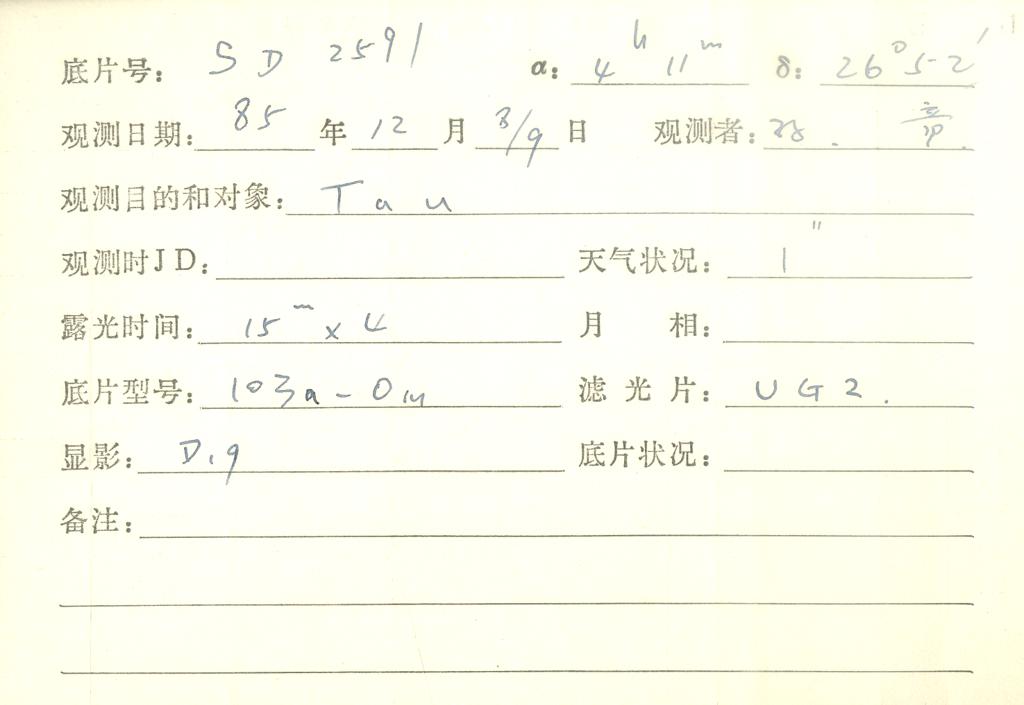 底片号: SD 2591 α: 4ʰ 11ᵐ δ: 26°52′
观测日期: 85 年 12 月 8/9 日 观测者:
观测目的和对象: Tau
观测时JD: 天气状况: 1″
露光时间: 15ᵐ x 4 月 相:
底片型号: 103a-O 滤光片: UG2.
显影: D.19 底片状况:
备注: